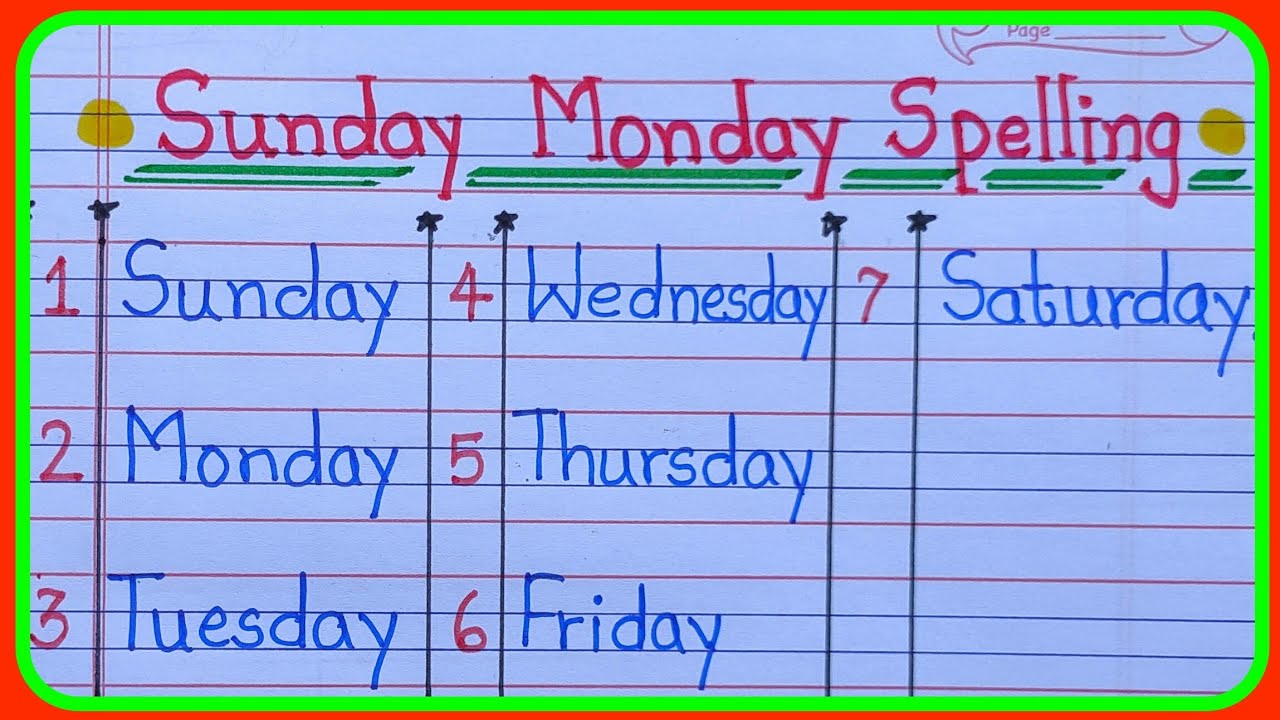 Page
Sunday Monday Spelling
1 Sunday
2 Monday
3 Tuesday
4 Wednesday
5 Thursday
6 Friday
7 Saturday